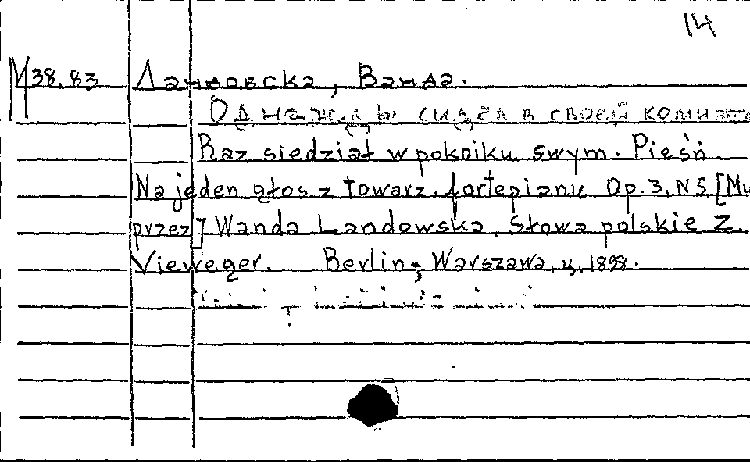 14
M 38.83 Ландовска, Ванда.
Однажды сидел в своей комнат
Raz siedział w pokoiku swym. Pieśń.
Na jeden głos z towarz. fortepianu Op.3, N 5 [Mu
przez] Wanda Landowska. Słowa polskie Z.
Vieweger. Berlin, Warszawa, 1898.